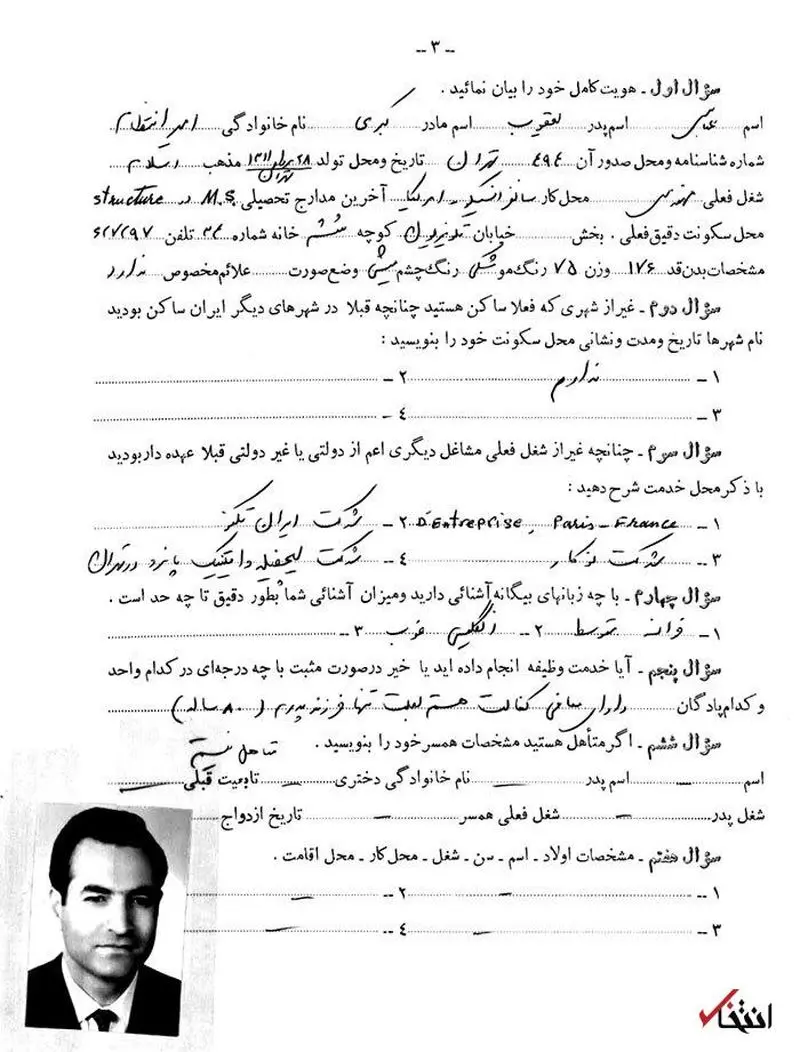 -- ۳ --
سؤال اول ـ هویت کامل خود را بیان نمائید .
اسم عباس اسم پدر یعقوب اسم مادر کبری نام خانوادگی امیرانتظام
شماره شناسنامه ومحل صدور آن ۴۹۴ تهران تاریخ ومحل تولد تهران مذهب اسلام
شغل فعلی مهندس محل کار سانفرانسیسکو ـ امریکا آخرین مدارج تحصیلی M.S. در structure
محل سکونت دقیق فعلی . بخش خیابان کوچه ششم خانه شماره ۳۴ تلفن ۶۲۷۲۹۷
مشخصات بدن قد ۱۷۶ وزن ۷۵ رنگ مو مشکی رنگ چشم میشی وضع صورت علائم مخصوص ندارد
سؤال دوم ـ غیر از شهری که فعلا ساکن هستید چنانچه قبلا در شهرهای دیگر ایران ساکن بودید
نام شهرها تاریخ ومدت ونشانی محل سکونت خود را بنویسید :
۱ -- ندارم ۲ --
۳ -- ۴ --
سؤال سوم ـ چنانچه غیر از شغل فعلی مشاغل دیگری اعم از دولتی یا غیر دولتی قبلا عهده دار بودید
با ذکر محل خدمت شرح دهید :
۱ -- D'Entreprise, Paris - France ۲ -- شرکت ایران تکنیک
۳ -- شرکت ۴ -- شرکت در تهران
سؤال چهارم ـ با چه زبانهای بیگانه آشنائی دارید ومیزان آشنائی شما بطور دقیق تا چه حد است .
۱ -- فرانسه متوسط ۲ -- انگلیسی خوب ۳ --
سؤال پنجم ـ آیا خدمت وظیفه انجام داده اید یا خیر درصورت مثبت با چه درجه‌ای در کدام واحد
و کدام پادگان دارای معافی کفالت هستم بعلت تنها فرزند پدرم (۸۰ ساله)
سؤال ششم ـ اگر متأهل هستید مشخصات همسر خود را بنویسید . متاهل نیستم
اسم — اسم پدر — نام خانوادگی دختری — تابعیت قبلی —
شغل پدر — شغل فعلی همسر — تاریخ ازدواج
سؤال هفتم ـ مشخصات اولاد ـ اسم ـ سن ـ شغل ـ محل کار ـ محل اقامت .
۱ -- — ۲ -- —
۳ -- — ۴ -- —
انتخاب